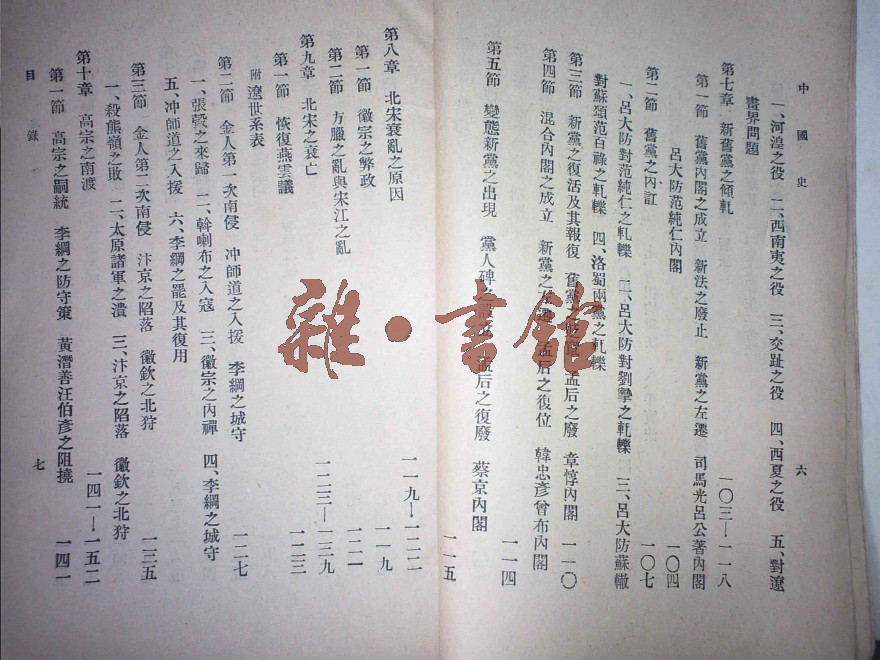 中國史
六
一、河湟之役 二、西南夷之役 三、交趾之役 四、西夏之役 五、對遼
畫界問題
第七章 新舊黨之傾軋 一〇三—一一八
第一節 舊黨內閣之成立 新法之廢止 新黨之左遷 司馬光呂公著內閣
呂大防范純仁內閣 一〇四
第二節 舊黨之內訌 一〇七
一、呂大防對范純仁之軋轢 二、呂大防對劉摯之軋轢 三、呂大防蘇轍
對蘇頌范百祿之軋轢 四、洛蜀兩黨之軋轢
第三節 新黨之復活及其報復 舊黨之 孟后之廢 章惇內閣 一一〇
第四節 混合內閣之成立 新黨之左遷 孟后之復位 韓忠彥曾布內閣
一一四
第五節 變態新黨之出現 黨人碑之設 孟后之復廢 蔡京內閣
一一五
第八章 北宋衰亂之原因 一一九—一二二
第一節 徽宗之弊政 一一九
第二節 方臘之亂與宋江之亂 一二一
第九章 北宋之衰亡 一二三—一三九
第一節 恢復燕雲議 一二三
附遼世系表
第二節 金人第一次南侵 冲師道之入援 李綱之城守 一二七
一、張瑴之來歸 二、斡喇布之入寇 三、徽宗之內禪 四、李綱之城守
五、冲師道之入援 六、李綱之罷及其復用
第三節 金人第二次南侵 汴京之陷落 徽欽之北狩 一三五
一、殺熊嶺之敗 二、太原諸軍之潰 三、汴京之陷落 徽欽之北狩
第十章 高宗之南渡 一四一—一五二
第一節 高宗之嗣統 李綱之防守策 黃潛善汪伯彥之阻撓 一四一
目錄
七
雜·書館